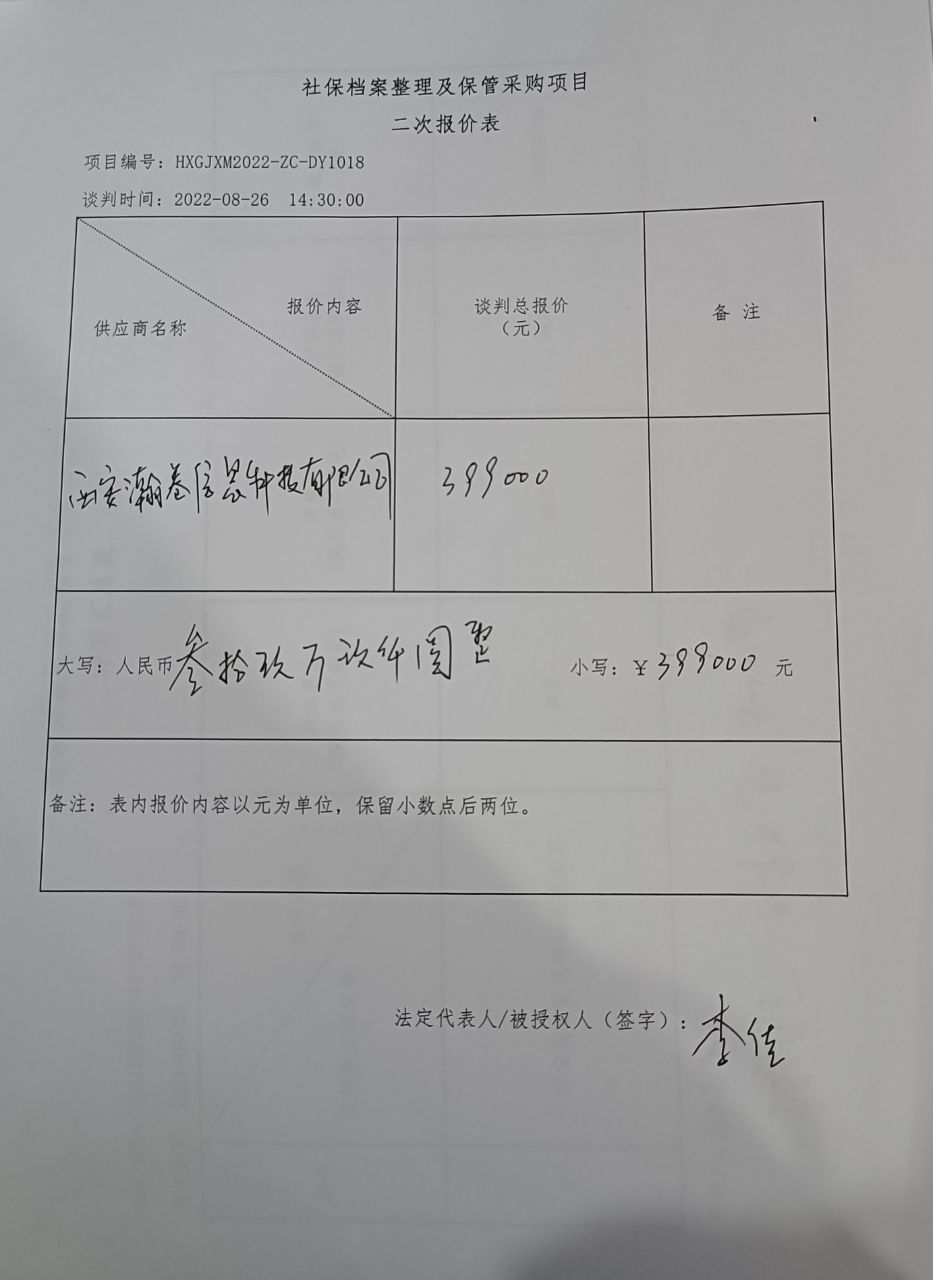 社保档案整理及保管采购项目
二次报价表
项目编号：HXGJXM2022-ZC-DY1018
谈判时间：2022-08-26 14:30:00
报价内容
供应商名称
谈判总报价
（元）
备 注
西安瀚卷信息科技有限公司
399000
大写：人民币叁拾玖万玖仟圆整 小写：￥399000 元
备注：表内报价内容以元为单位，保留小数点后两位。
法定代表人/被授权人（签字）：李佳